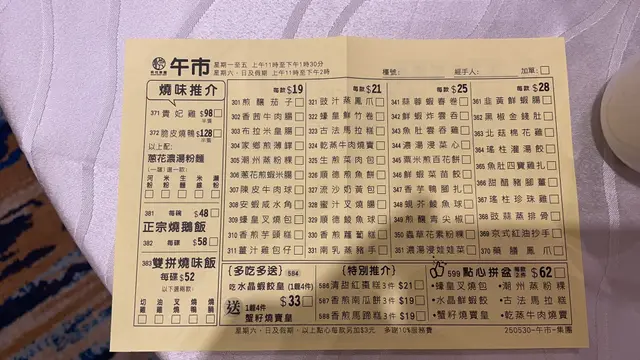 午市
星期一至五 上午11時至下午1時30分
星期六、日及假期 上午11時至下午2時
檯號: 經手人: 加單:
燒味推介
371 貴妃雞 $98
372 脆皮燒鴨 $128
以上配:
蔥花濃湯粉麵
河粉 米粉 生麵 米線 瀨粉
381 每碗 $48
正宗燒鵝飯
382 每碟 $58
383 雙拼燒味飯
每碟 $52
以下選兩款:
切雞 油雞 叉燒 燒鴨 燒鵝
每款 $19
301 煎釀茄子
302 香茜牛肉腸
303 布拉米皇腸
304 家鄉煎薄罉
305 潮州蒸粉粿
306 蔥花煎蝦腸
307 陳皮牛肉球
308 安蝦咸水角
309 蠔皇叉燒包
310 香煎芋頭糕
311 薑汁雞包仔
每款 $21
321 豉汁蒸鳳爪
322 蠔皇鮮竹卷
323 古法馬拉糕
324 乾蒸牛肉燒賣
325 生煎菜肉包
326 香煎蝦米腸
327 流沙奶黃包
328 蜜汁叉燒腸
329 順德鯪魚球
330 香煎蘿蔔糕
331 南乳蒸豬手
每款 $25
341 蒜蓉蝦春卷
342 鮮蝦炸雲吞
343 魚肚雲吞雞
344 濃湯浸菜心
345 粟米煎百花餅
346 鮮蝦菜苗餃
347 香芋鴨腳扎
348 蜆汁鯪魚球
349 煎釀青尖椒
350 蟲草花素粉粿
351 濃湯浸娃娃菜
每款 $28
361 韭黃鮮蝦腸
362 黑椒金錢肚
363 北菇棉花雞
364 瑤柱灌湯餃
365 魚肚四寶雞扎
366 甜醋豬腳薑
367 瑤柱珍珠雞
368 豉蒜蒸排骨
369 京式紅油抄手
370 藥膳鳳爪
[多吃多送] 584
吃水晶蝦餃皇(1籠4件)
$33
送 1籠4件
蟹籽燒賣皇
[特別推介]
586 清甜紅棗糕 3件 $21
587 香煎南瓜餅 3件 $19
588 香煎馬蹄糕 3件 $19
599 點心拼盆 $62
•蠔皇叉燒包 •潮州蒸粉粿
•水晶鮮蝦餃 •古法馬拉糕
•蟹籽燒賣皇 •乾蒸牛肉燒賣
星期六、日及假期,以上點心每款另加$3元 多謝10%服務費
250530-午市-集團